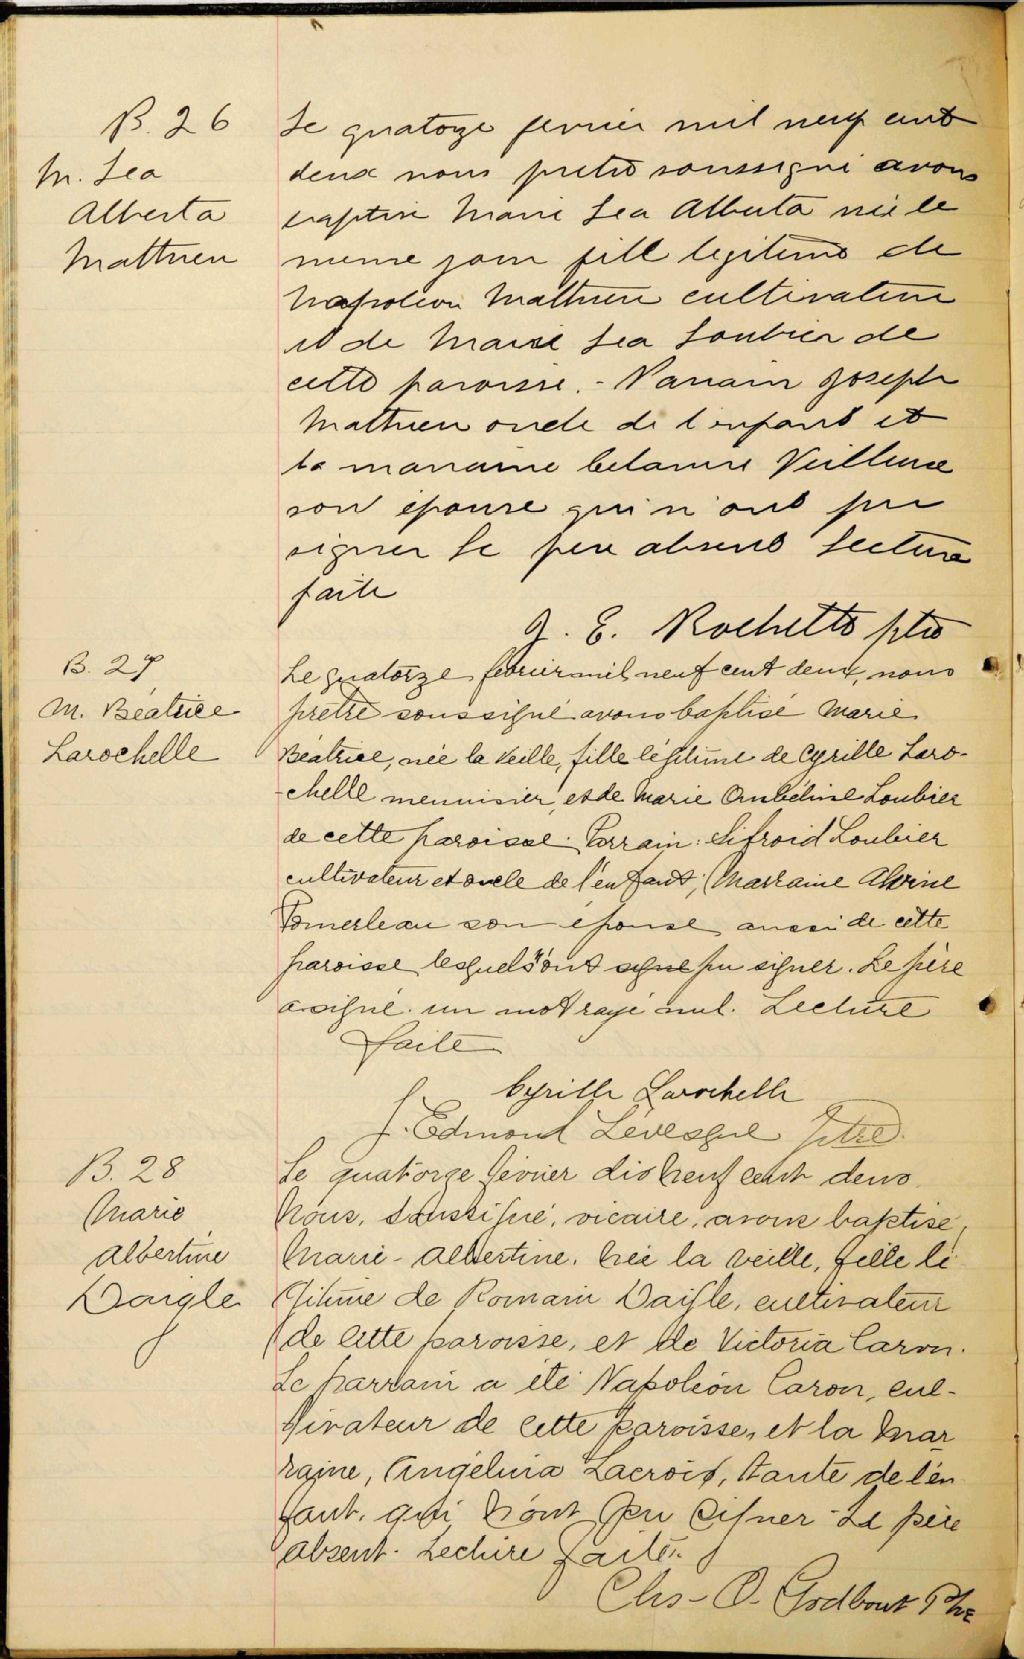 B. 26
M. Lea
Alberta
Mathieu
Le quatorze fevrier mil neuf cent
deux nous pretre soussigné avons
baptisé Marie Lea Alberta née le
meme jour fille legitime de
Napoleon Mathieu cultivateur
et de Marie Lea Loubier de
cette paroisse. - Parrain Joseph
Mathieu oncle de l'enfant et
la marraine Celanire Veilleux
son épouse qui n'ont pu
signer Le pere absent Lecture
faite
J. E. Rochette ptre
B. 27
M. Béatrice
Larochelle
Le quatorze février mil neuf cent deux, nous
prêtre soussigné avons baptisé Marie
Béatrice, née la veille, fille légitime de Cyrille Laro-
-chelle menuisier, et de Marie Ombéline Loubier
de cette paroisse. Parrain: Sifroid Loubier
cultivateur et oncle de l'enfant; Marraine Alvine
Pomerleau son épouse aussi de cette
paroisse lesquels n'ont signé pu signer. Le père
a signé. un mot rayé nul. Lecture
faite
Cyrille Larochelle
J. Edmond Lévesque Ptre.
B. 28
Marie
Albertine
Daigle
Le quatorze février dix neuf cent deux
Nous, soussigné, vicaire, avons baptisé,
Marie-Albertine, née la veille, fille lé
gitime de Romain Daigle, cultivateur
de cette paroisse, et de Victoria Caron.
Le parrain a été Napoléon Caron, cul-
tivateur de cette paroisse, et la mar-
raine, Angélina Lacroix, tante de l'en
fant, qui n'ont pu signer - Le père
absent. Lecture faite.
Chs-O-Godbout Ptre